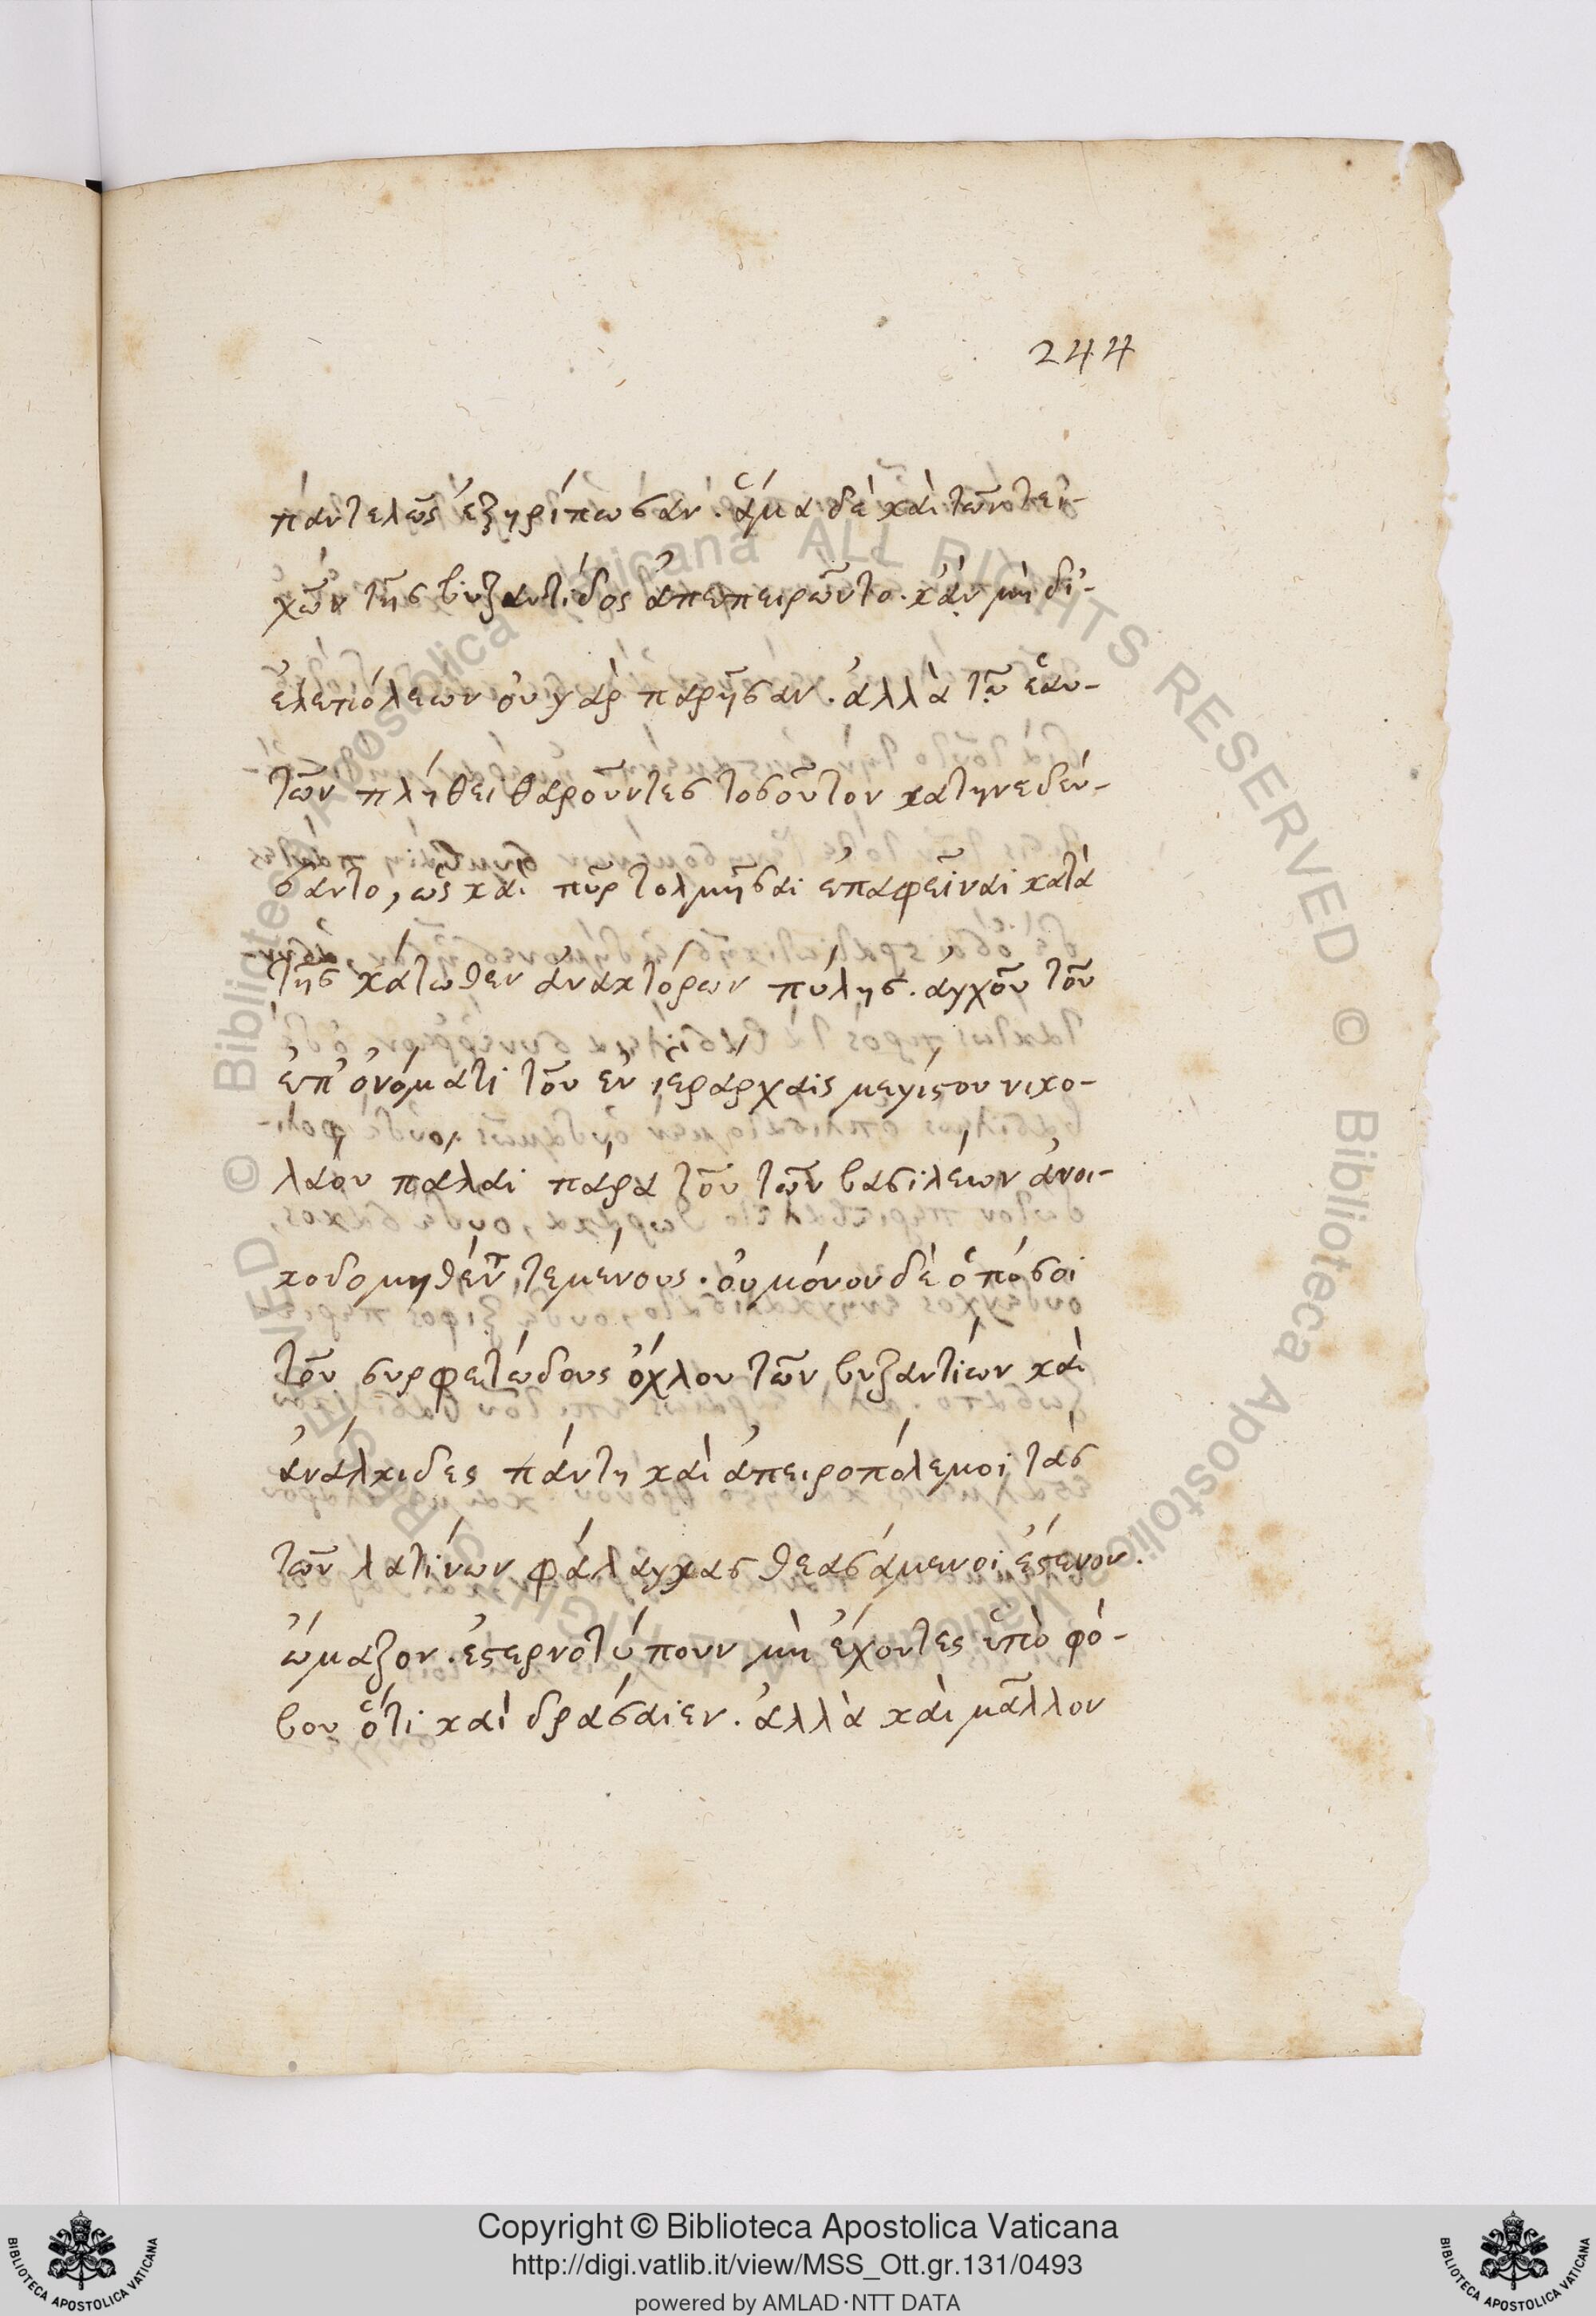 244
παντελῶς ἐξηρίπωσαν. ἅμα δὲ καὶ τῶν τει-
χῶν τῆς βυζαντίδος ἀπεπειρῶντο. κἂν μὴ δι'
ἑλεπόλεων οὐ γὰρ παρῆσαν. ἀλλὰ τῷ ἑαυ-
τῶν πλήθει θαροῦντες τοσοῦτον κατηνεδεύ-
σαντο, ὡς καὶ πῦρ τολμῆσαι ἐπαφεῖναι κατὰ
τῆς κάτωθεν ἀνακτόρων πύλης. ἀγχοῦ τοῦ
ἐπ' ὀνόματι τοῦ ἐν ἱεράρχαις μεγίστου νικο-
λάου πάλαι παρά του τῶν βασιλέων ἀνοι-
κοδομηθέντ τεμένους. οὐ μόνον δὲ ὁπόσοι
τοῦ συρφετώδους ὄχλου τῶν βυζαντίων καὶ
ἀνάλκιδες πάντη καὶ ἀπειροπόλεμοι τὰς
τῶν λατίνων φάλαγκας θεασάμενοι ἔστενον.
ὤμαζον. ἐστερνοτύπουν μὴ ἔχοντες ὑπὸ φό-
βου ὅτι καὶ δράσαιεν. ἀλλὰ καὶ μᾶλλον
© Biblioteca Apostolica Vaticana ALL RIGHTS RESERVED © Biblioteca Apostolica Vaticana ALL RIGHTS RESERVED
Copyright © Biblioteca Apostolica Vaticana
http://digi.vatlib.it/view/MSS_Ott.gr.131/0493
powered by AMLAD·NTT DATA
BIBLIOTECA APOSTOLICA VATICANA
BIBLIOTECA APOSTOLICA VATICANA